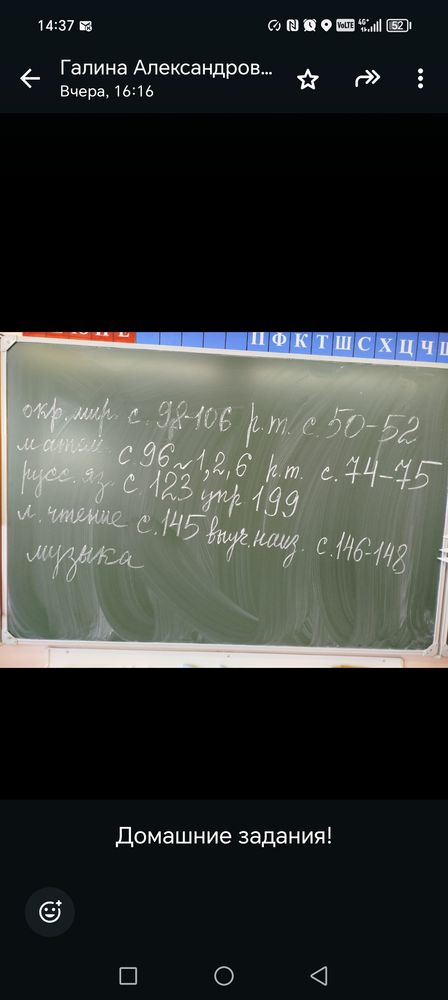 14:37
VoLTE 4G+ 52
Галина Александров...
Вчера, 16:16
П Ф К Т Ш С Х Ц Ч Щ
окр. мир. с. 98-106 р.т. с. 50-52
матем. с. 96 ~ 1, 2, 6 р.т. с. 74-75
русс. яз. с. 123 упр 199
л. чтение с. 145 выуч. наиз. с. 146-148
музыка
Домашние задания!